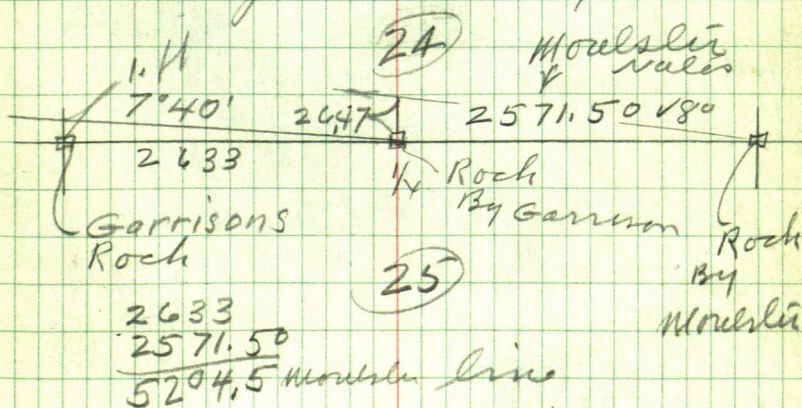 24
Moulster
1.H
7°40'
26,47
2571.50 V8°
2633
1/4 Rock
By Garrison
Garrisons
Rock
Rock
By
Moulster
25
2633
2571.50
5204.5 Moulster line